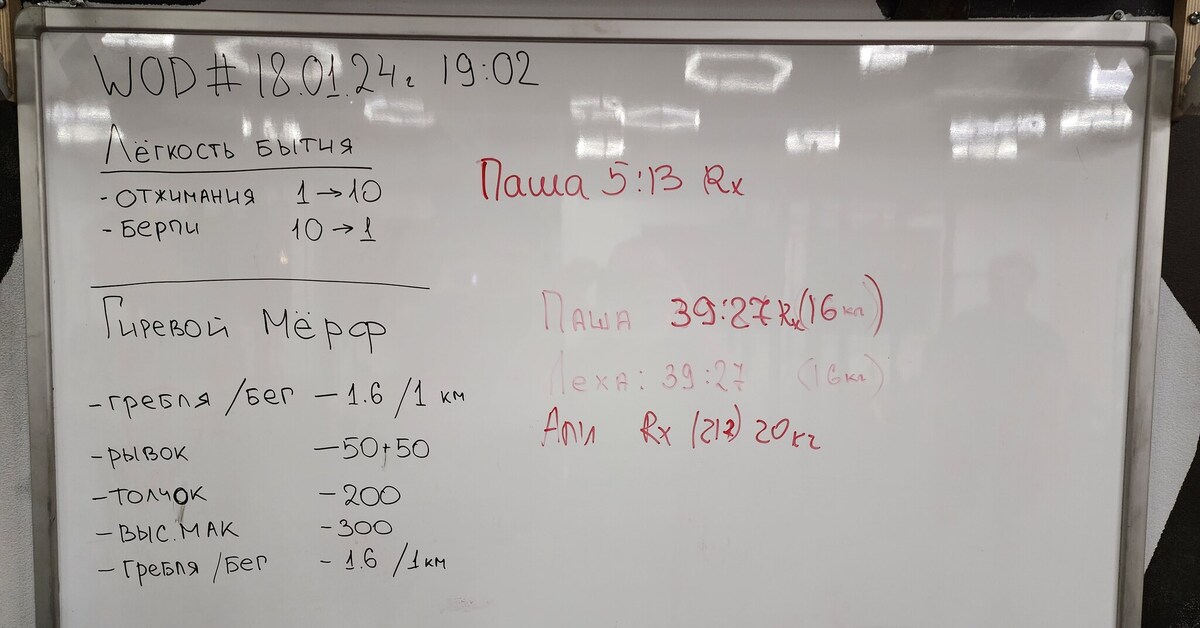 WOD # 18.01.24г 19:02
Лёгкость бытия
- отжимания 1→10
- Берпи 10→1
Паша 5:13 Rx
Гиревой Мёрф
- гребля / бег – 1.6 / 1 км
- рывок – 50+50
- толчок – 200
- выс. мак – 300
- Гребля / бег – 1.6 / 1 км
Паша 39:27 Rx (16 кг)
Леха: 39:27 (16 кг)
Али Rx 20 кг